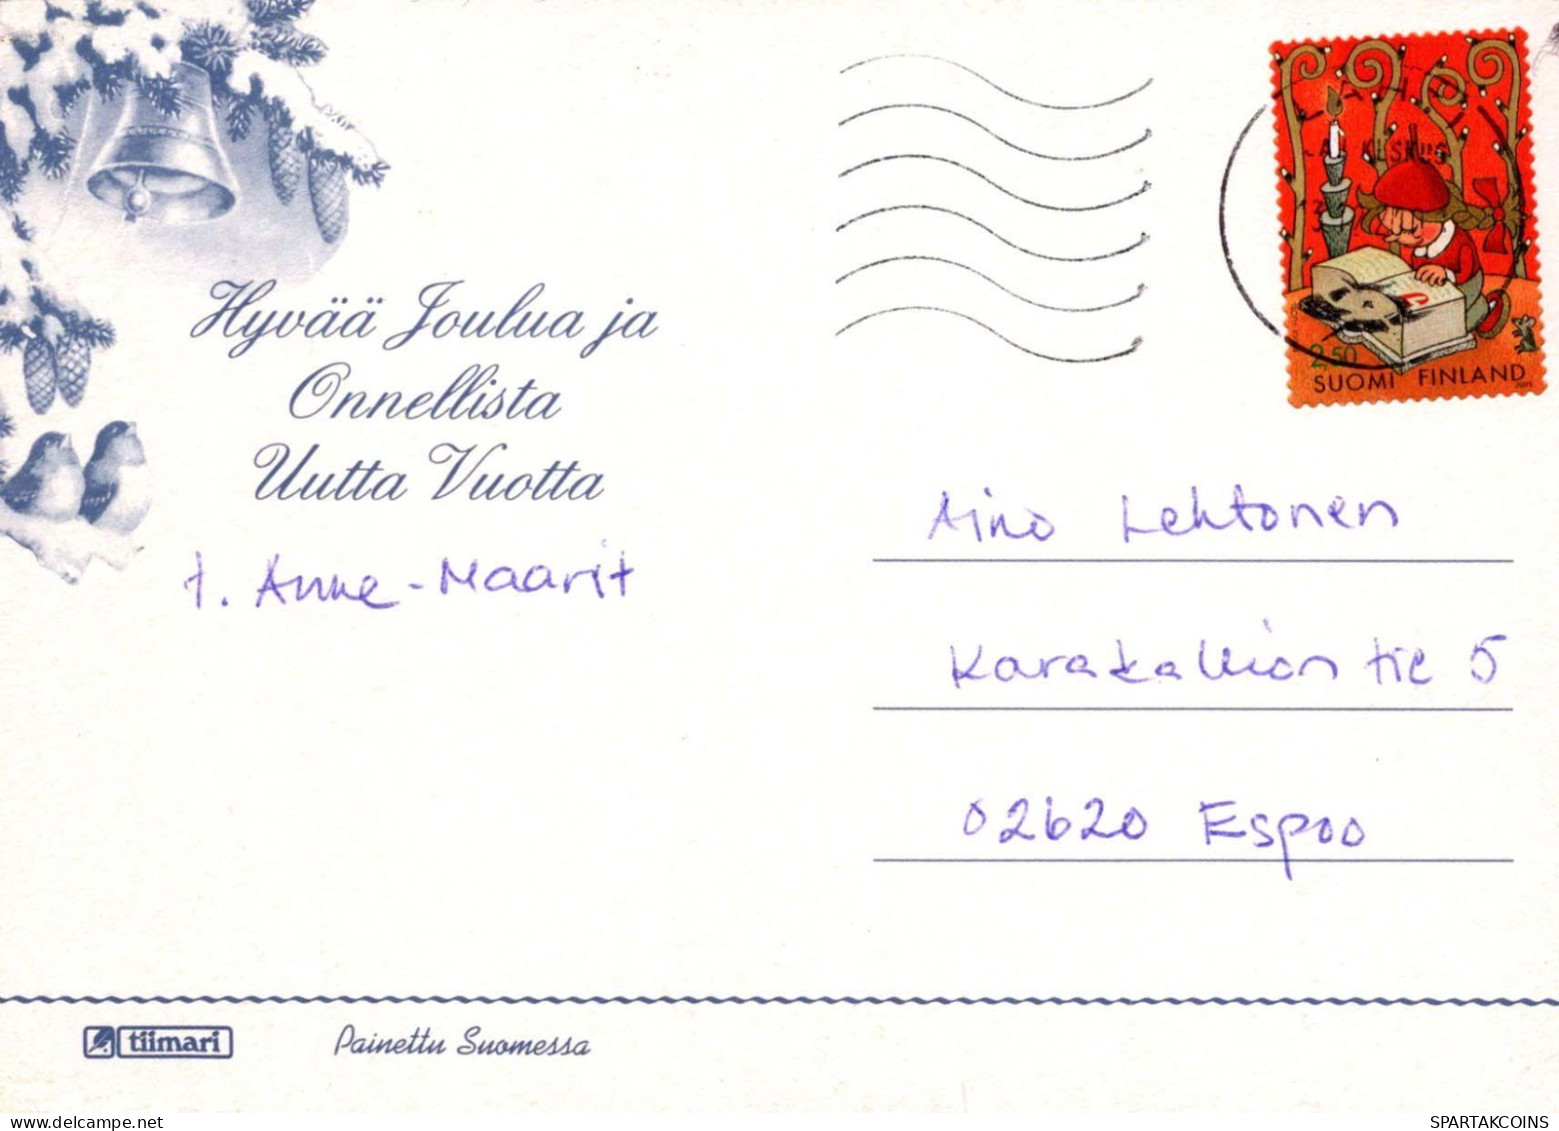 Hyvää Joulua ja
Onnellista
Uutta Vuotta
t. Anne-Maarit
2,50
SUOMI FINLAND
Aino Lehtonen
Karakallion tie 5
02620 Espoo
tiimari
Painettu Suomessa
SPARTAKCOINS